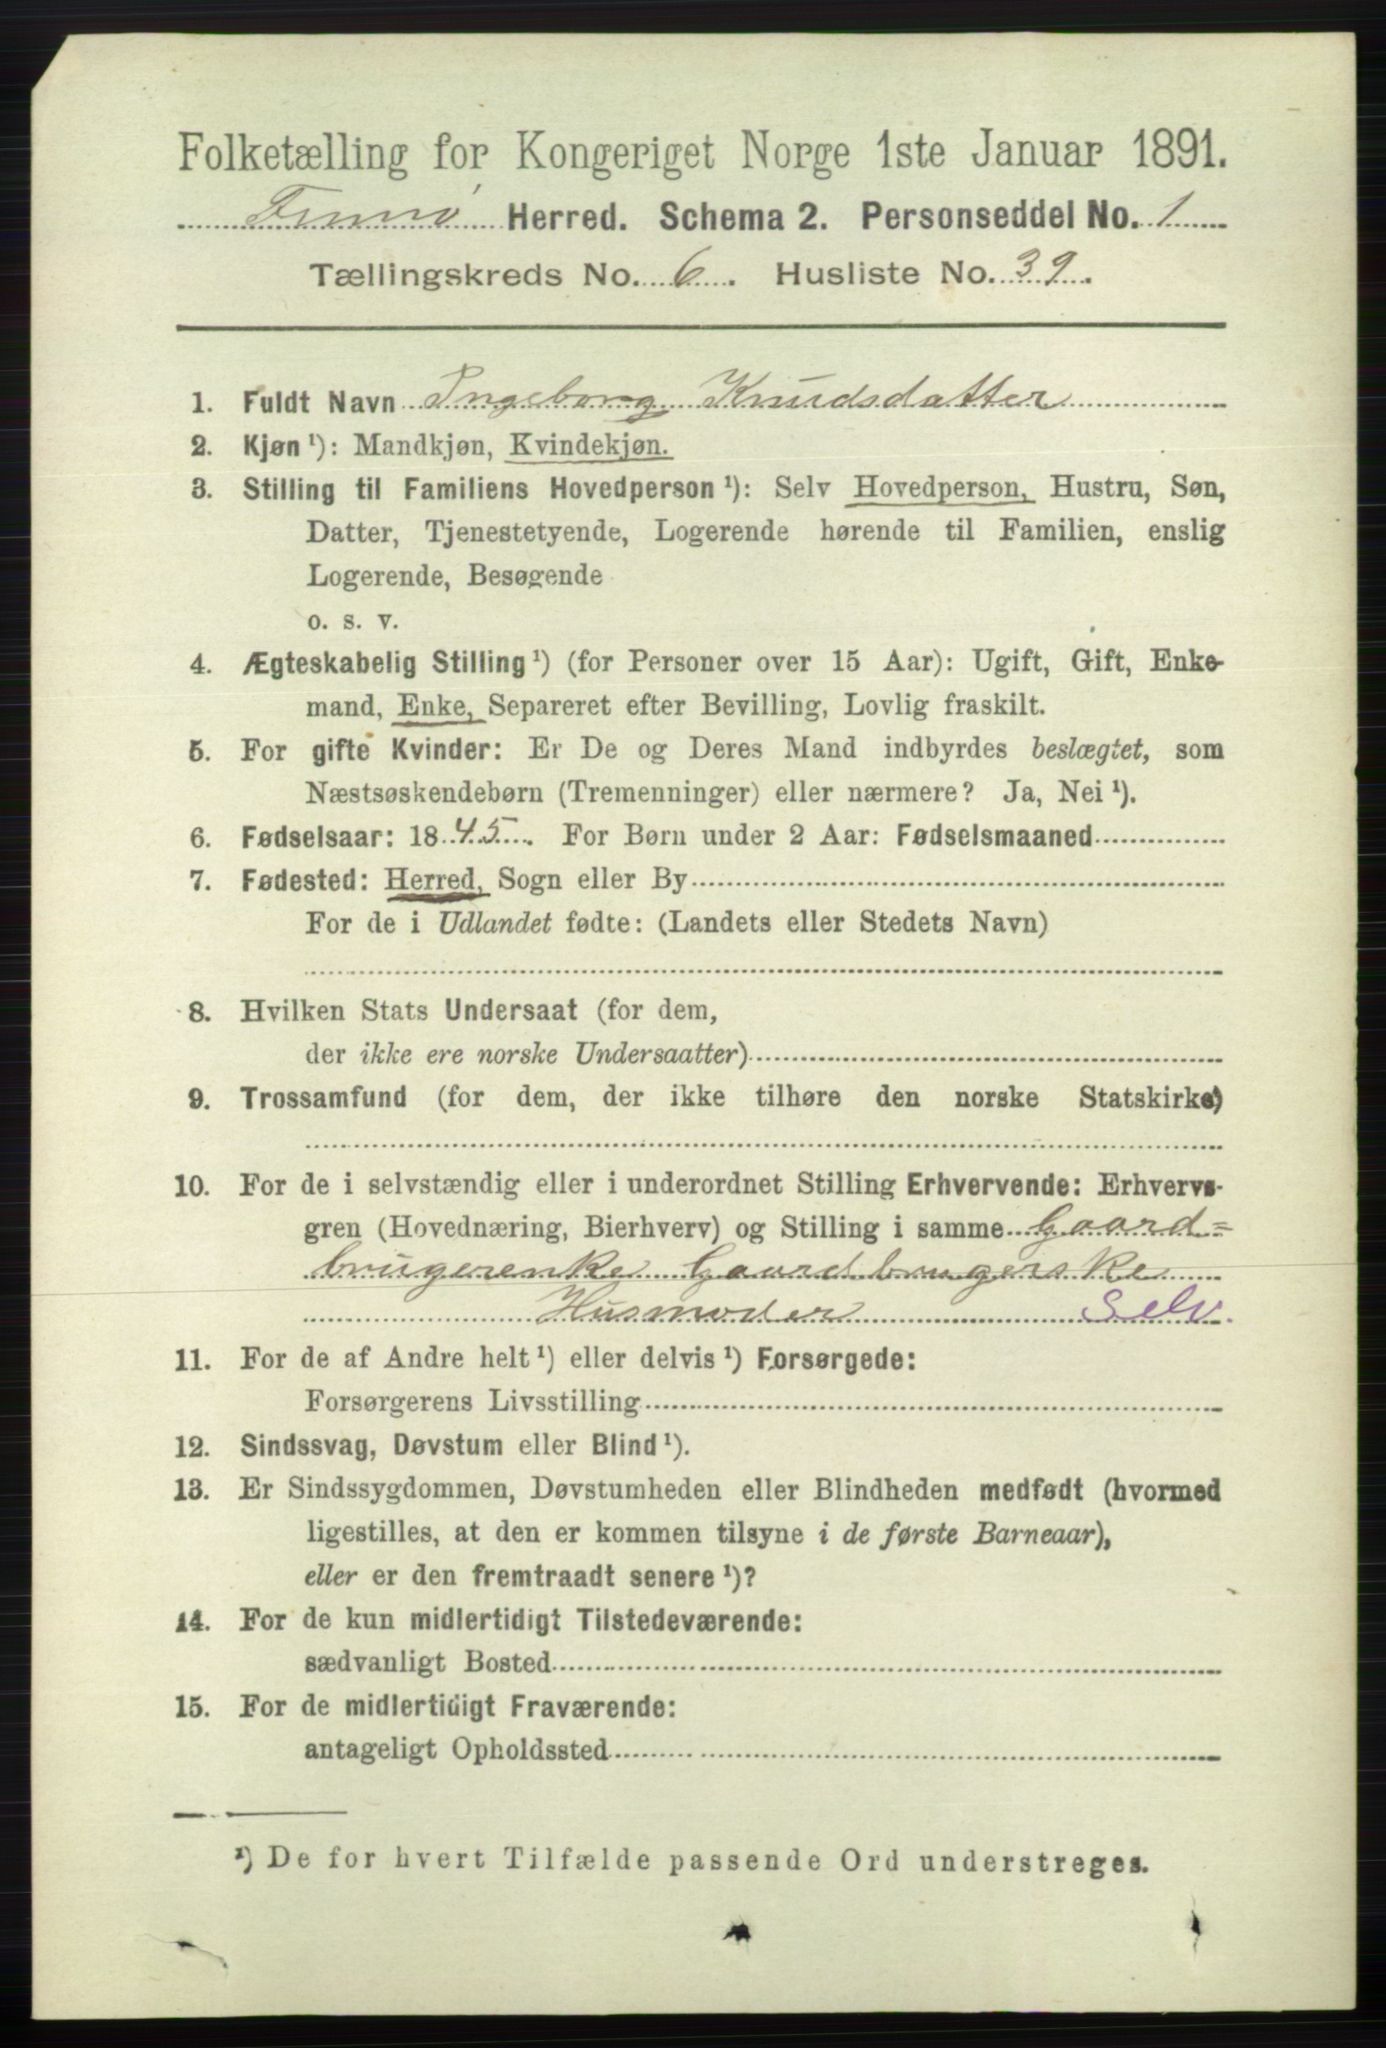 Folketælling for Kongeriget Norge 1ste Januar 1891.
Finnø Herred. Schema 2. Personseddel No. 1
Tællingskreds No. 6. Husliste No. 39.
1. Fuldt Navn Ingeborg Knudsdatter
2. Kjøn ¹): Mandkjøn, Kvindekjøn.
3. Stilling til Familiens Hovedperson ¹): Selv Hovedperson, Hustru, Søn,
Datter, Tjenestetyende, Logerende hørende til Familien, enslig
Logerende, Besøgende
o. s. v.
4. Ægteskabelig Stilling ¹) (for Personer over 15 Aar): Ugift, Gift, Enke-
mand, Enke, Separeret efter Bevilling, Lovlig fraskilt.
5. For gifte Kvinder: Er De og Deres Mand indbyrdes beslægtet, som
Næstsøskendebørn (Tremenninger) eller nærmere? Ja, Nei ¹).
6. Fødselsaar: 1845. For Børn under 2 Aar: Fødselsmaaned
7. Fødested: Herred, Sogn eller By
For de i Udlandet fødte: (Landets eller Stedets Navn)
8. Hvilken Stats Undersaat (for dem,
der ikke ere norske Undersaatter)
9. Trossamfund (for dem, der ikke tilhøre den norske Statskirke)
10. For de i selvstændig eller i underordnet Stilling Erhvervende: Erhvervs-
gren (Hovednæring, Bierhverv) og Stilling i samme Gaard=
brugerenke Gaardbrugerske
Husmoder Selv.
11. For de af Andre helt ¹) eller delvis ¹) Forsørgede:
Forsørgerens Livsstilling
12. Sindssvag, Døvstum eller Blind ¹).
13. Er Sindssygdommen, Døvstumheden eller Blindheden medfødt (hvormed
ligestilles, at den er kommen tilsyne i de første Barneaar),
eller er den fremtraadt senere ¹)?
14. For de kun midlertidigt Tilstedeværende:
sædvanligt Bosted
15. For de midlertidigt Fraværende:
antageligt Opholdssted
¹) De for hvert Tilfælde passende Ord understreges.